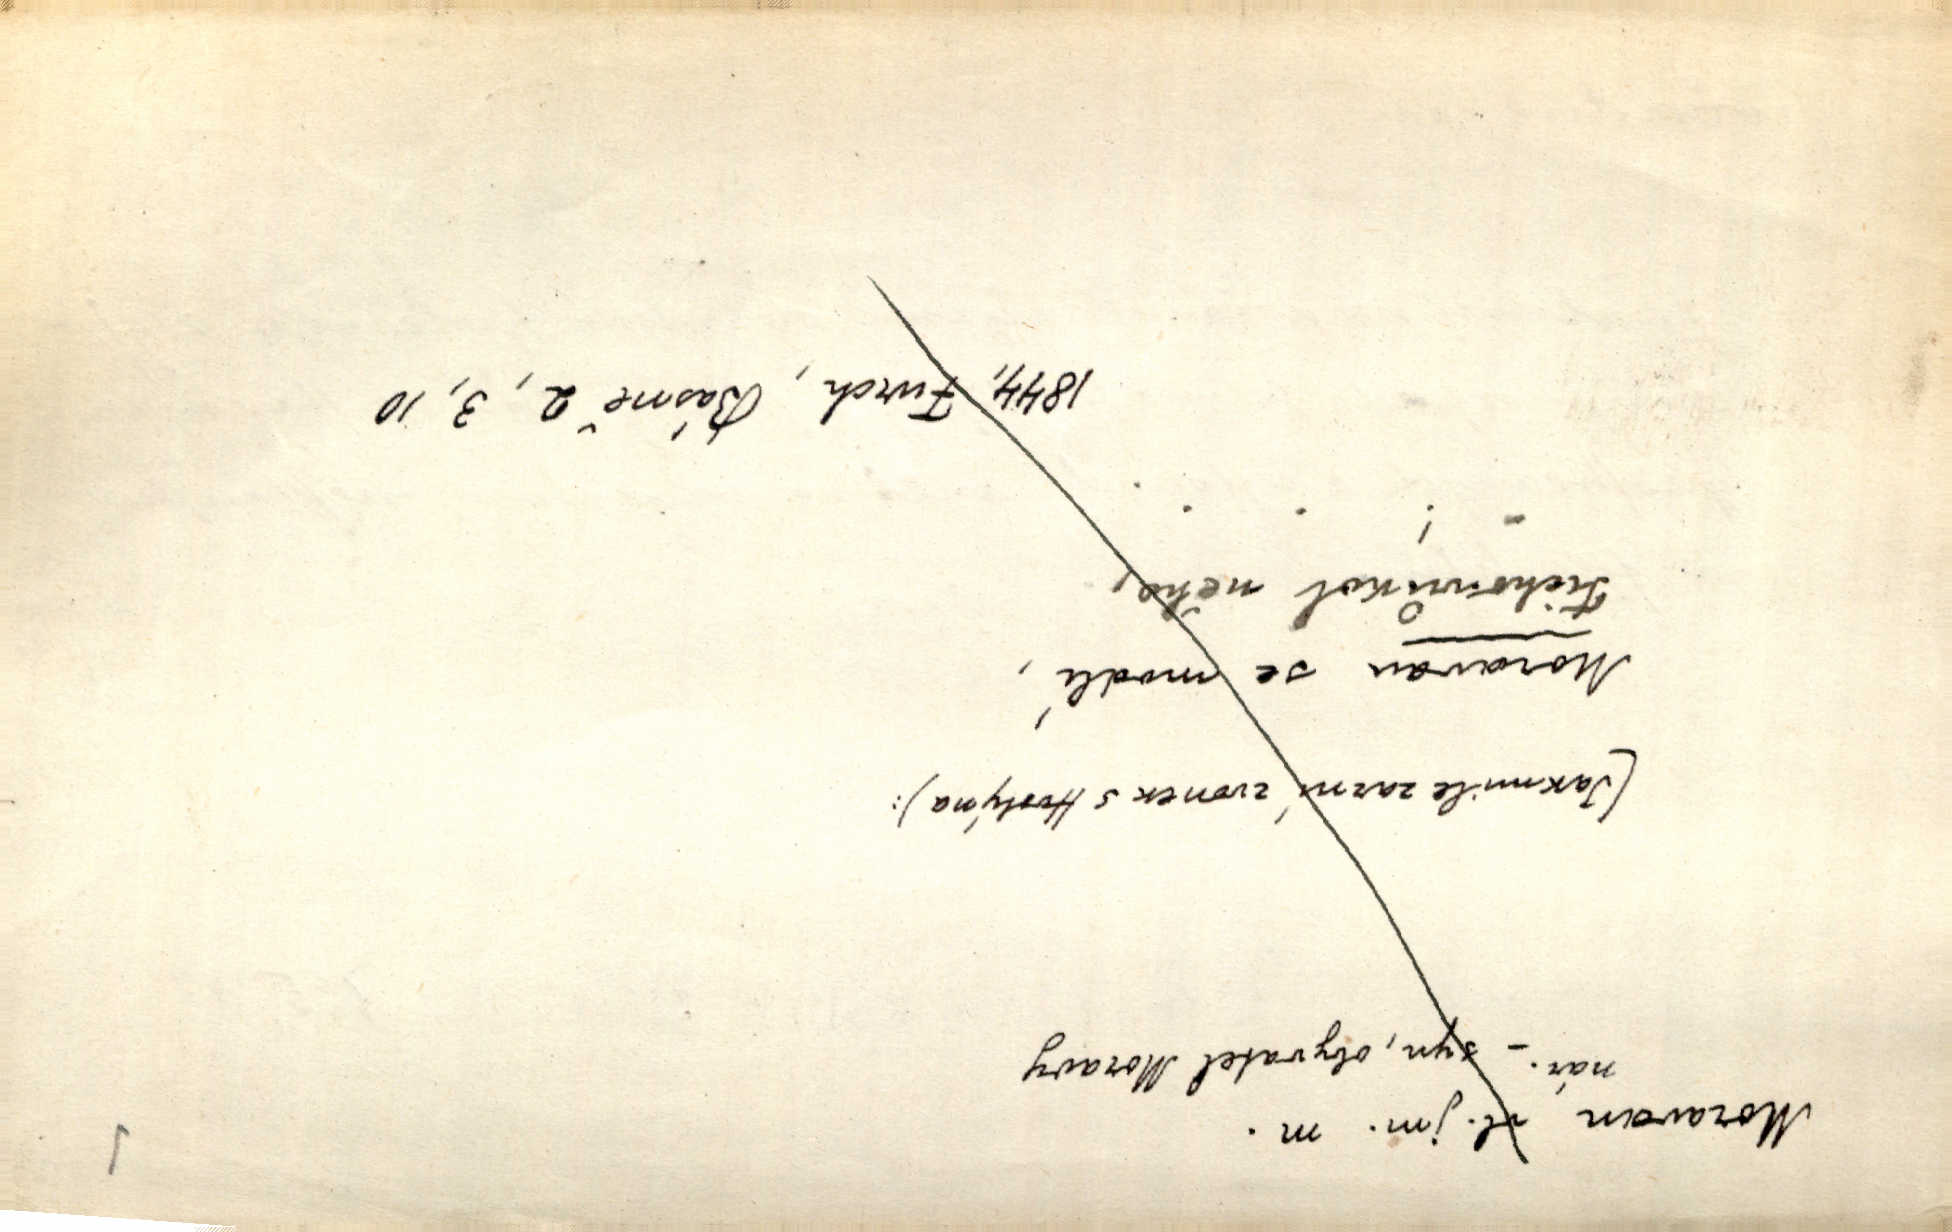 1
Moravan, vl. jm. m.
nár. – syn, obyvatel Moravy
(Jakmile zazní zvonek s Hostýna):
Moravan se modlí,
Ticho vůkol něho,
– ! . . .
1844, Furch, Básně 2, 3, 10